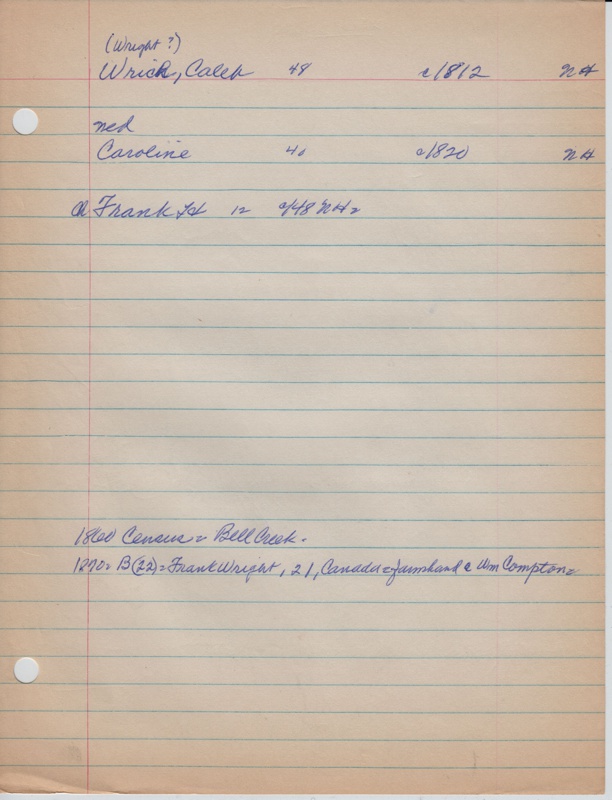 (Wright?)
Wrich, Caleb 48 c1812 NH
med
Caroline 40 c1820 NH
Ch Frank H 12 c/48 NH=
1860 Census = Bell Creek.
1870= B(22)= Frank Wright, 21, Canada = farmhand c Wm Compton=